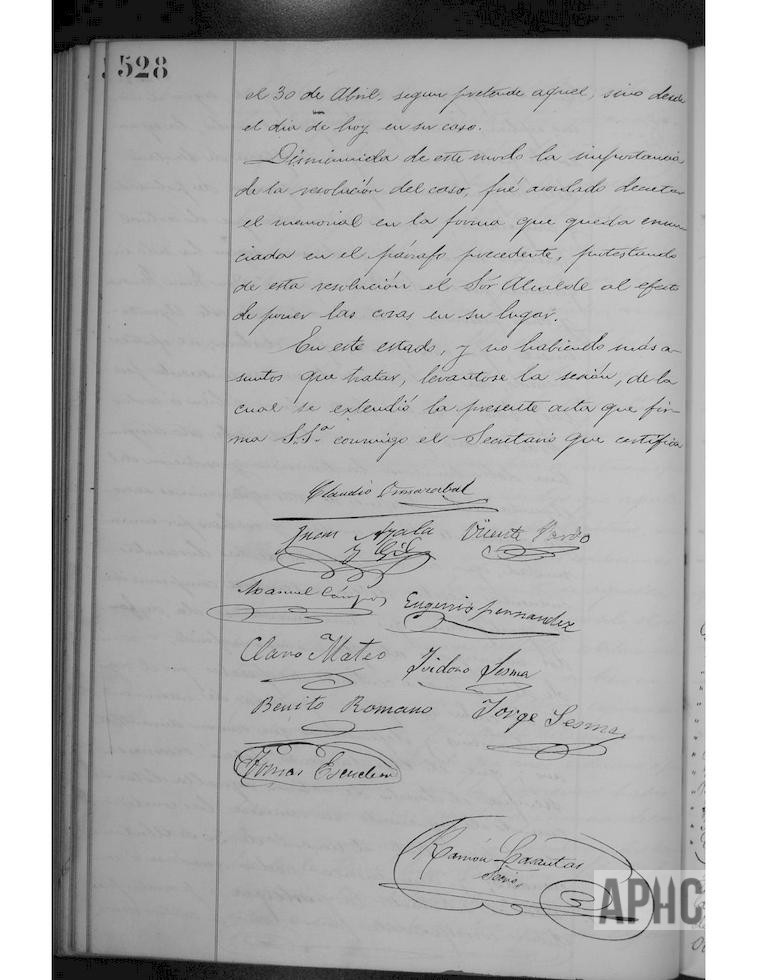 528
el 30 de Abril, segun pretende aquel, sino desde
el dia de hoy en su caso.
Disminuida de este modo la importancia
de la resolución del caso, fué acordado decretar
el memorial en la forma que queda enun-
ciada en el párrafo precedente, protestando
de esta resolución el Sór Alcalde al efecto
de poner las cosas en su lugar.
En este estado, y no habiendo más a-
suntos que tratar, levantose la sesión, de la
cual se extendió la presente acta que fir-
ma S.Sª conmigo el Secretario que certifica
Claudio
Juan Ayala
y Gil
Vicente Pardo
Manuel Campos
Eugenio Fernandez
Claro Mateo
Isidoro Sesma
Benito Romano
Jorge Sesma
Tomas Escudero
Ramón
Srio.
APHC